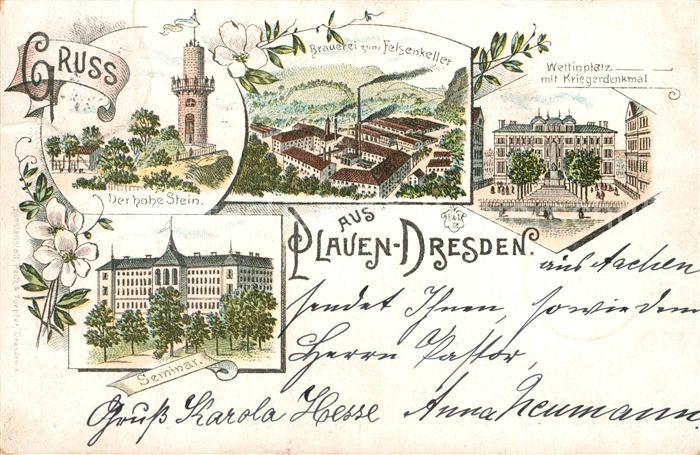 GRUSS
Der hohe Stein.
Brauerei zum Felsenkeller
Wettinplatz
mit Kriegerdenkmal
AUS
PLAUEN-DRESDEN.
Seminar.
aus Aachen
sendet Ihnen, sowie dem
Herrn Pastor,
Gruß Karola Hesse Anna Neumann.